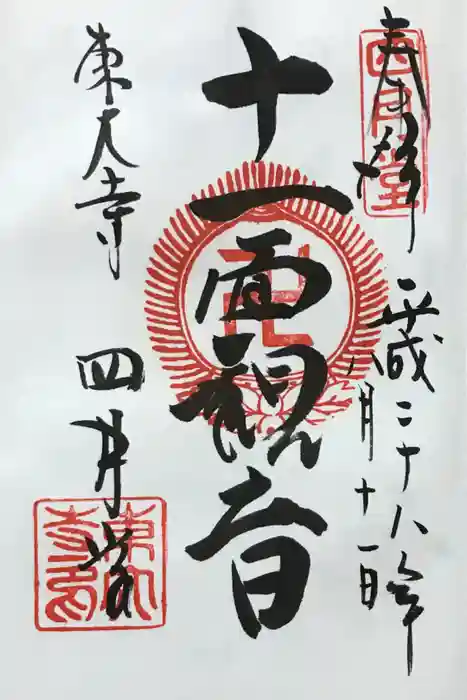 奉拝
四月堂
平成二十八年
八月十一日
十一面観音
東大寺
四月堂